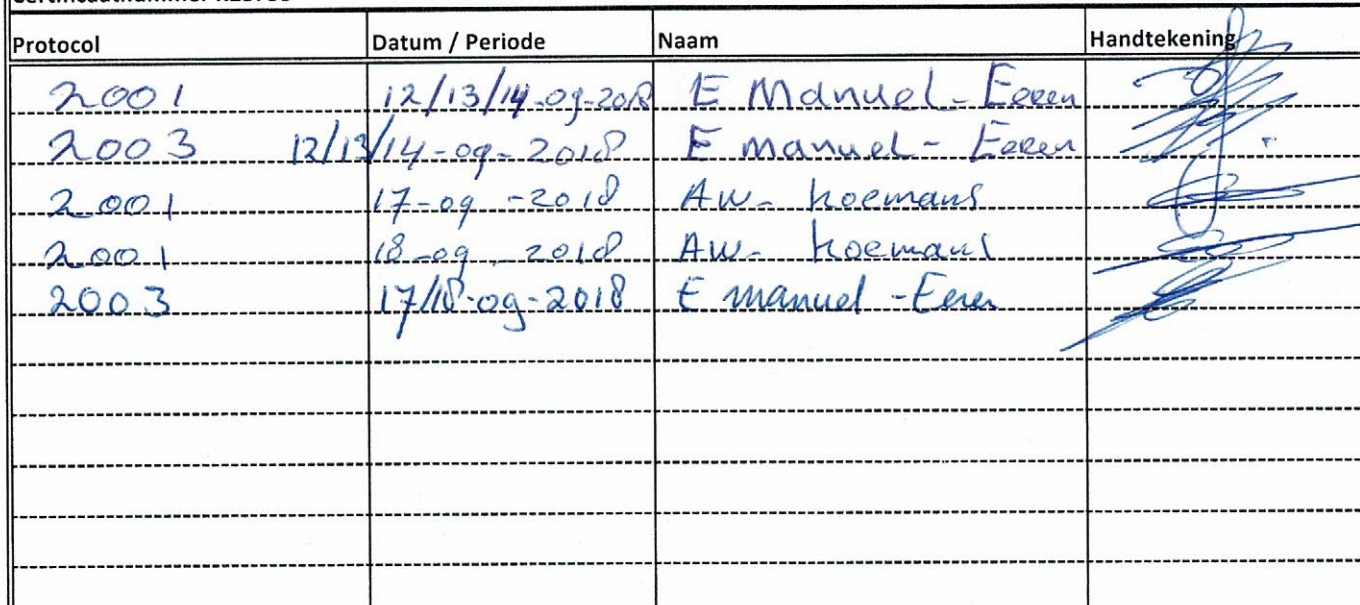 Protocol Datum / Periode Naam Handtekening
2001 12/13/14-09-2018 E Manuel-Eeren
2003 12/13/14-09-2018 E manuel- Eeren
2001 17-09-2018 AW- Koemans
2001 18-09-2018 AW- Koemans
2003 17/18-09-2018 E manuel-Eeren